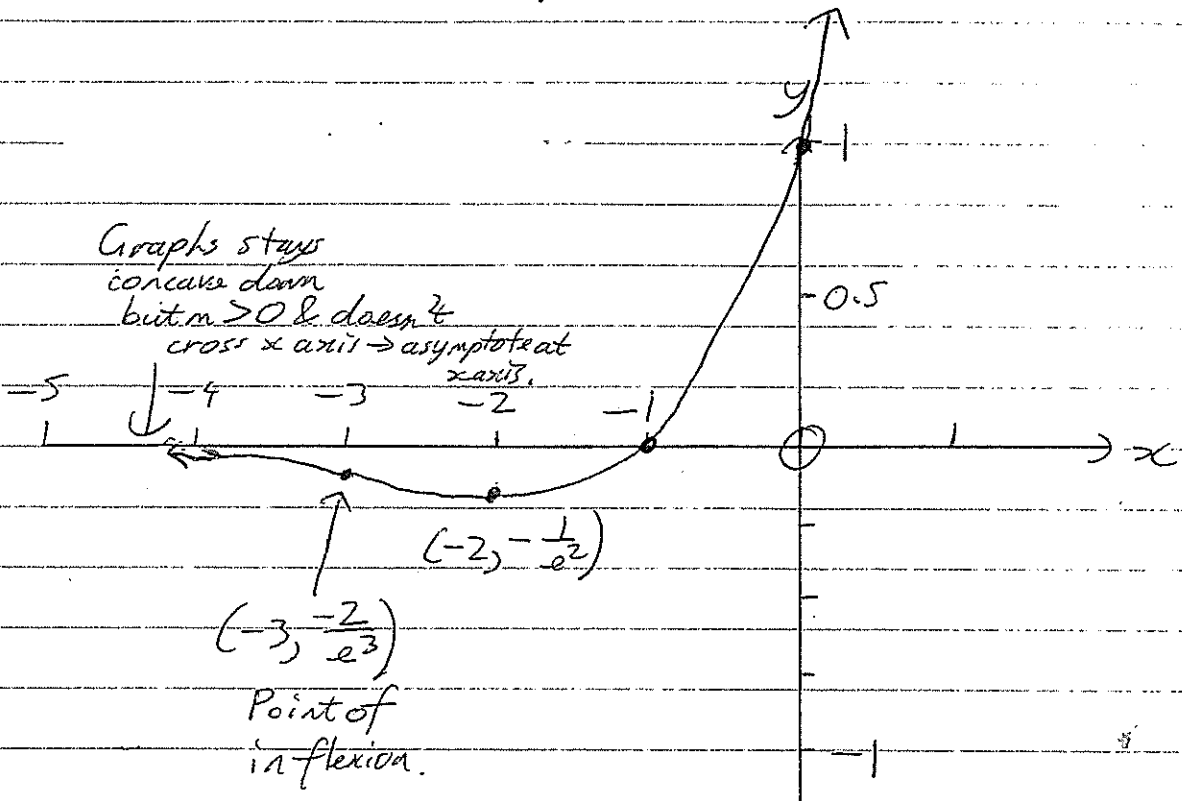 y
1
Graphs stays
concave down
but m > 0 & doesn't
cross x axis → asymptote at
x axis.
0.5
-5 -4 -3 -2 -1 x
(-2, -1/e²)
(-3, -2/e³)
Point of
inflexion.
-1